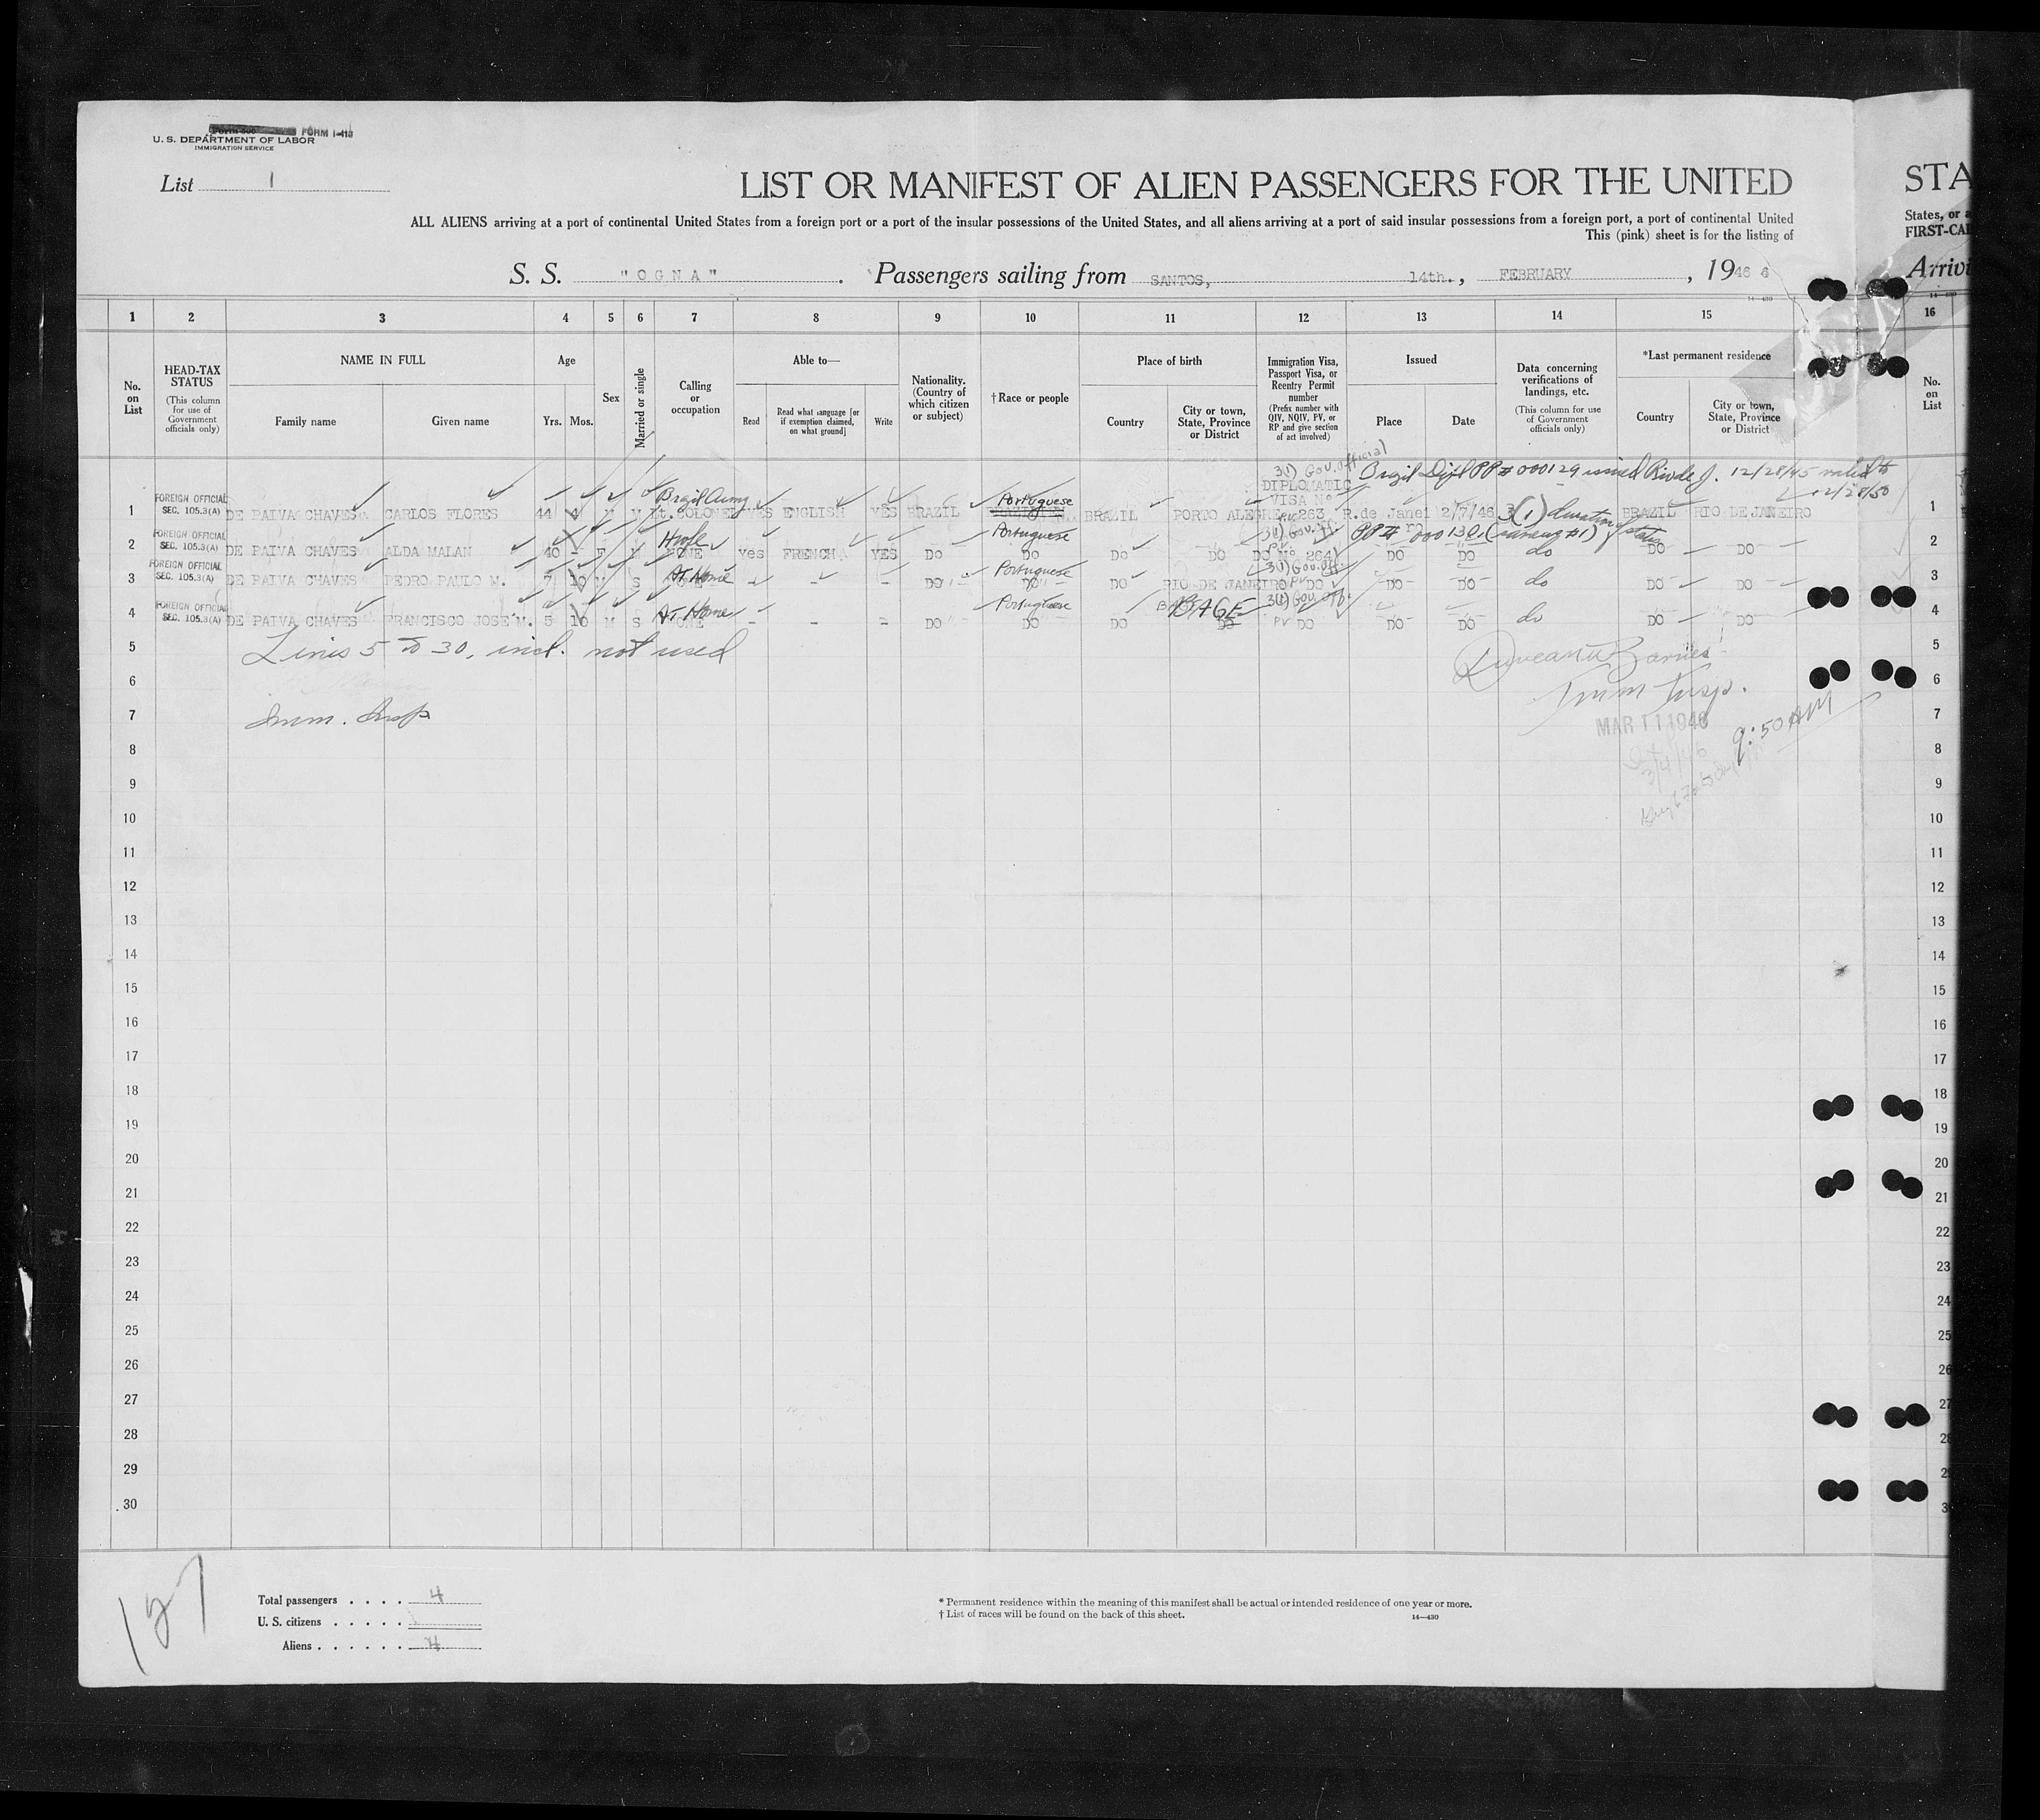 Form 500 FORM I-418
U. S. DEPARTMENT OF LABOR
IMMIGRATION SERVICE
List 1
LIST OR MANIFEST OF ALIEN PASSENGERS FOR THE UNITED
STA
ALL ALIENS arriving at a port of continental United States from a foreign port or a port of the insular possessions of the United States, and all aliens arriving at a port of said insular possessions from a foreign port, a port of continental United
States, or a
This (pink) sheet is for the listing of
FIRST-CA
S. S. "OGNA". Passengers sailing from SANTOS, 14th., FEBRUARY, 1946
Arrivi
14—430
1 2 3 4 5 6 7 8 9 10 11 12 13 14 15 16
No. on List
HEAD-TAX STATUS (This column for use of Government officials only)
NAME IN FULL Family name Given name
Age Yrs. Mos.
Sex
Married or single
Calling or occupation
Able to— Read Read what language [or if exemption claimed, on what ground] Write
Nationality. (Country of which citizen or subject)
†Race or people
Place of birth Country City or town, State, Province or District
Immigration Visa, Passport Visa, or Reentry Permit number (Prefix number with QIV, NQIV, PV, or RP and give section of act involved)
Issued Place Date
Data concerning verifications of landings, etc. (This column for use of Government officials only)
*Last permanent residence Country City or town, State, Province or District
No. on List
3(1) Gov. Official Brazil Dipl PP # 000129 issued Rio de J. 12/28/45 valid to 12/28/50
DIPLOMATIC
FOREIGN OFFICIAL Brazil Army Portuguese VISA Nº
1 SEC. 105.3(A) DE PAIVA CHAVES CARLOS FLORES 44 4 M M Lt.COLONEL YES ENGLISH YES BRAZIL BRAZIL PORTO ALEGRE 263 R.de Janei 2/7/46 3(1) duration of status BRAZIL RIO DE JANEIRO 1
FOREIGN OFFICIAL Hwfe Portuguese 3(1) Gov. Off. PP # 000130 ro
2 SEC. 105.3(A) DE PAIVA CHAVES ALDA MALAN 40 - F M NONE yes FRENCH YES DO DO DO DO DO Nº 264 DO DO do DO DO 2
FOREIGN OFFICIAL At Home Portuguese 3(1) Gov. Off.
3 SEC. 105.3(A) DE PAIVA CHAVES PEDRO PAULO M. 7 10 M S NONE - - - DO DO DO RIO DE JANEIRO PV DO DO DO do DO DO 3
FOREIGN OFFICIAL At Home Portuguese BAGE 3(1) Gov. Off.
4 SEC. 105.3(A) DE PAIVA CHAVES FRANCISCO JOSE M. 5 10 M S NONE - - - DO DO DO DO PV DO DO DO do DO DO 4
5 Lines 5 to 30, incl. not used 5
6 Imm Insp. 6
7 Imm. Insp. MAR 11 1946 9:50 AM 7
8 8
3/4/46
9 9
10 10
11 11
12 12
13 13
14 14
15 15
16 16
17 17
18 18
19 19
20 20
21 21
22 22
23 23
24 24
25 25
26 26
27 27
28 28
29 29
30 3
127
Total passengers . . . . 4
U. S. citizens . . . . .
Aliens . . . . . . 4
* Permanent residence within the meaning of this manifest shall be actual or intended residence of one year or more.
† List of races will be found on the back of this sheet. 14—430